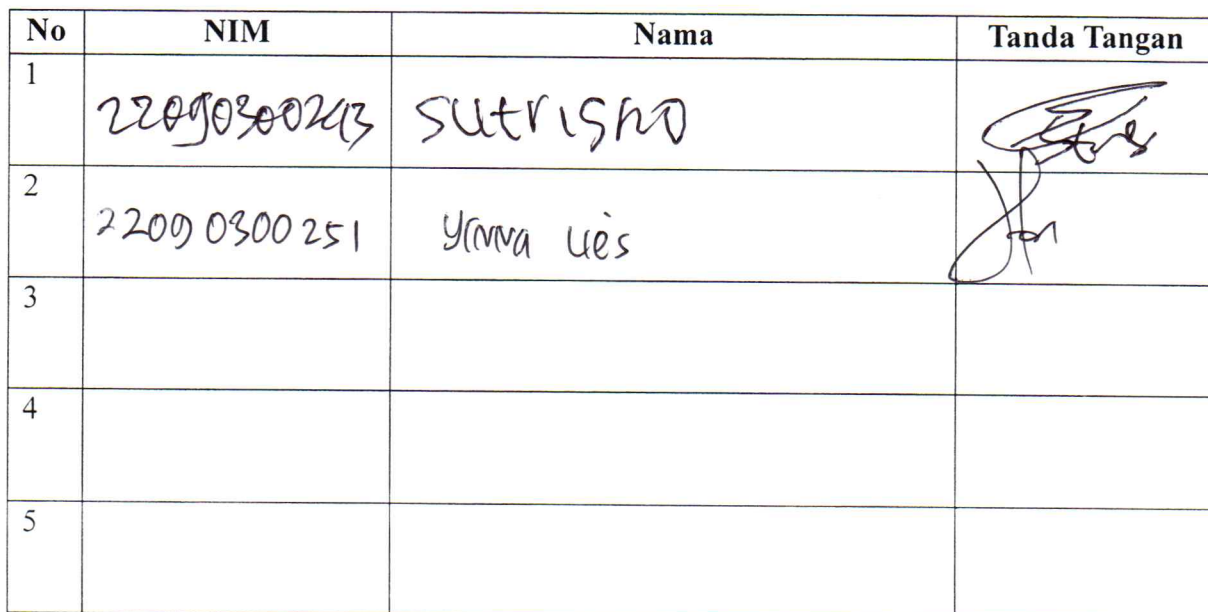 No NIM Nama Tanda Tangan
1 22090300243 Sutrisno
2 22090300251
3
4
5